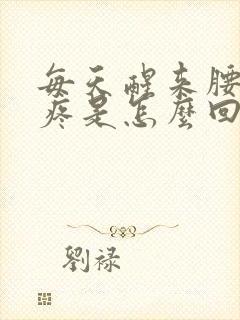 每天醒来腰
疼是怎麼回
劉禄